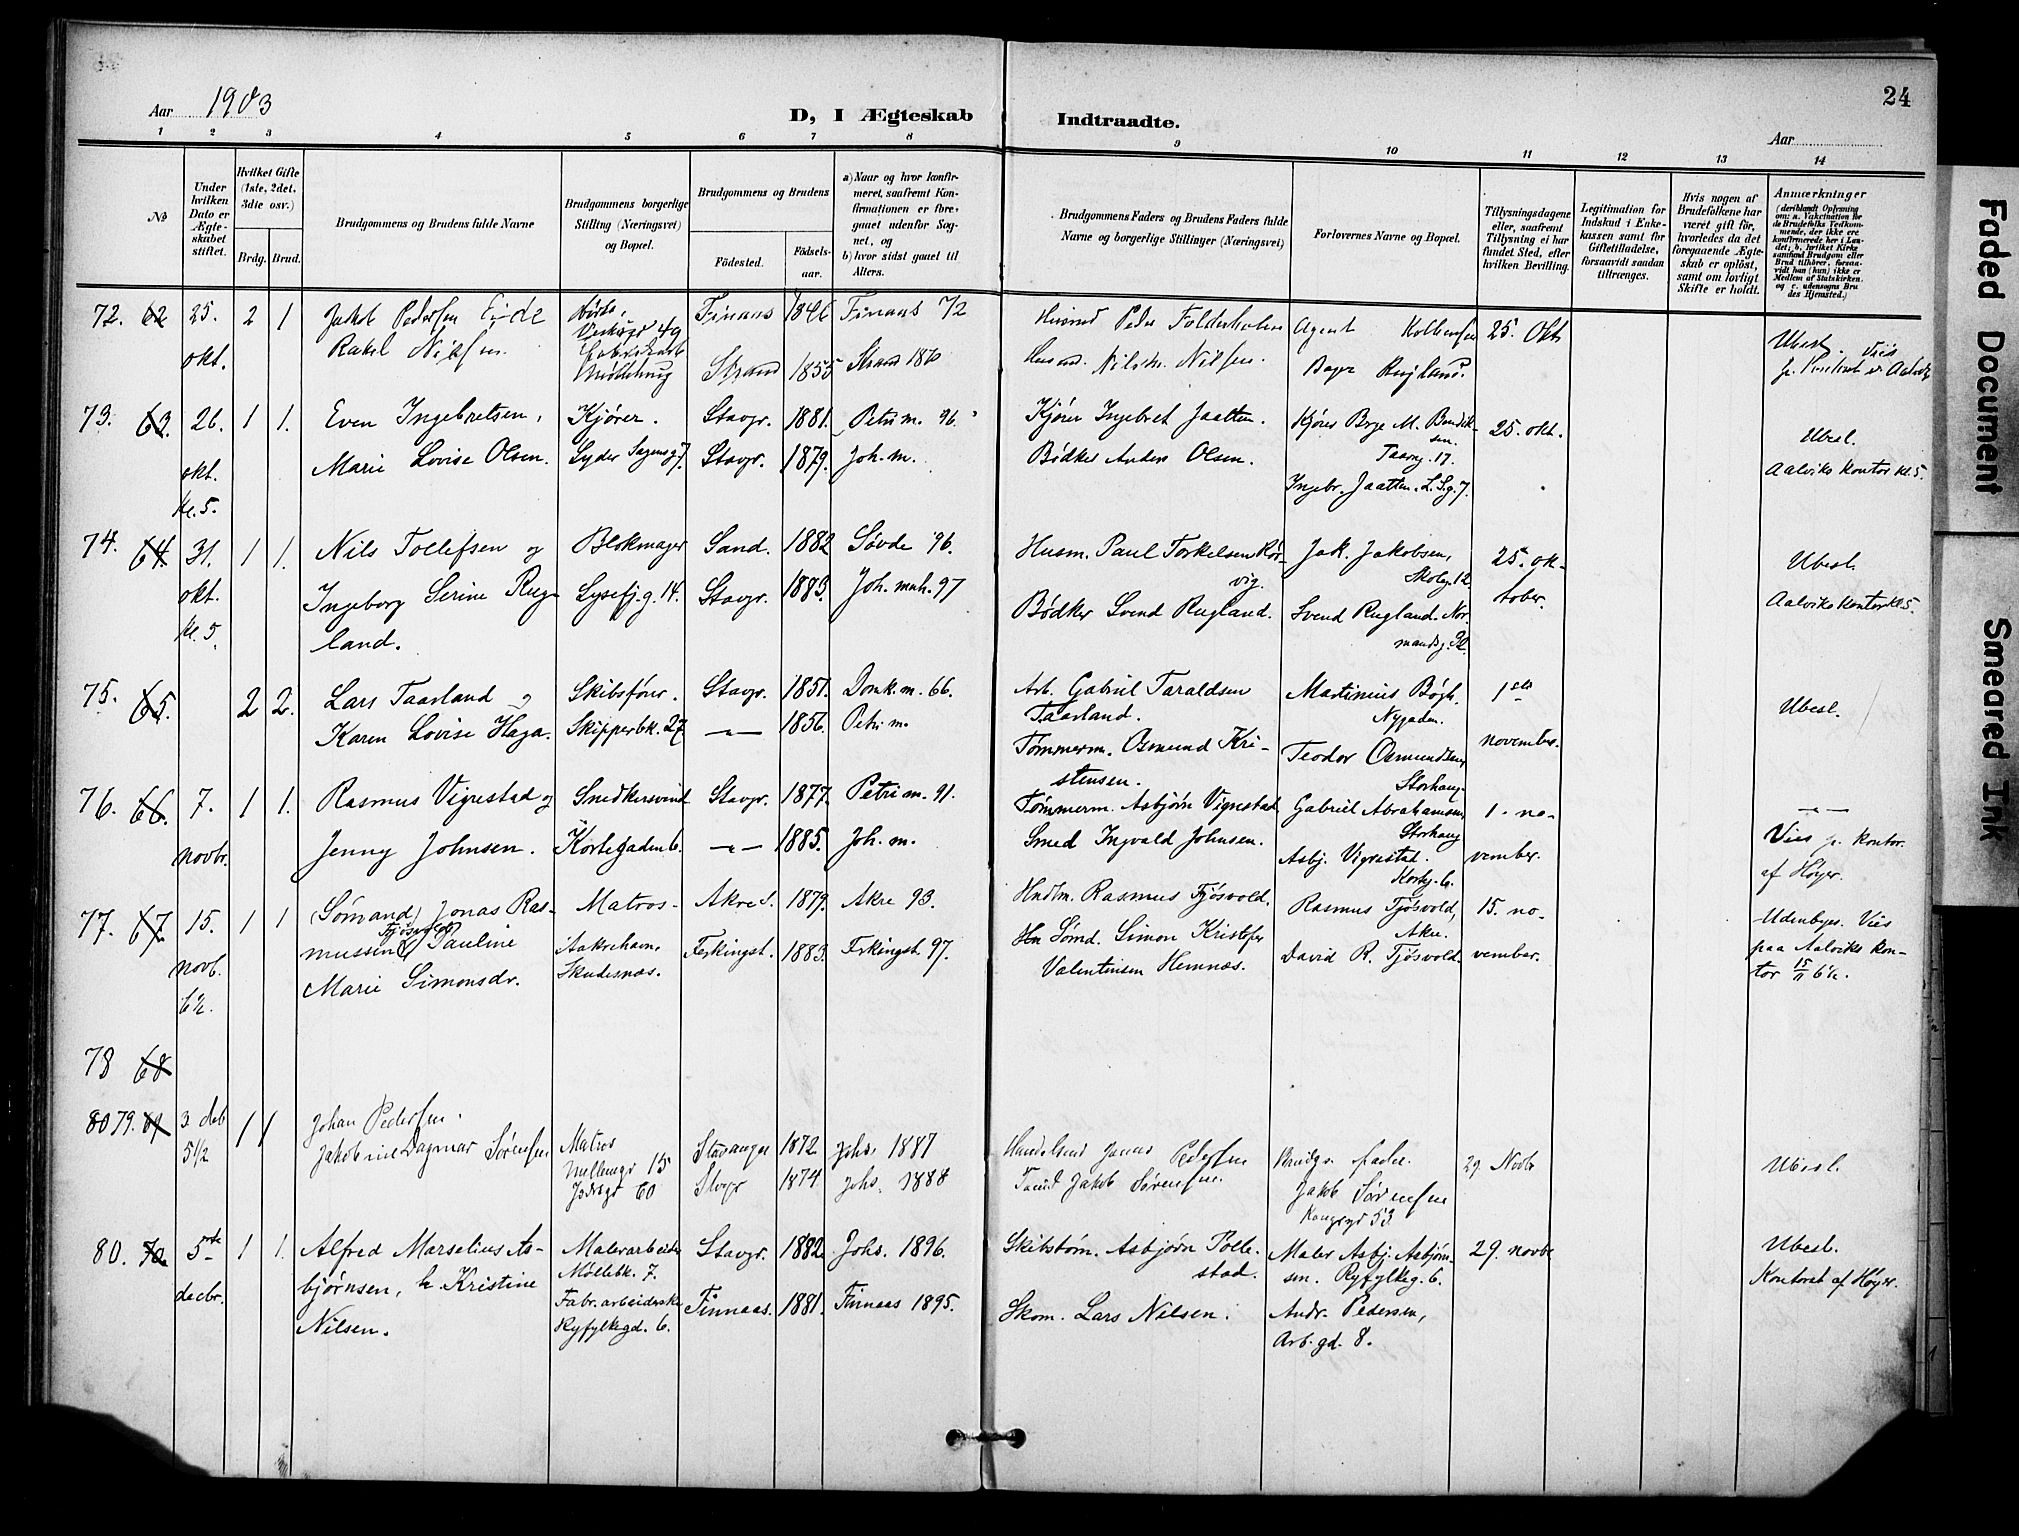 Aar 1903
D, I Ægteskab
Indtraadte.
Aar
24
1 2 3 4 5 6 7 8 9 10 11 12 13 14
No
Under hvilken Dato er Ægteskabet stiftet.
Hvilket Gifte (1ste, 2det, 3die osv.)
Brdg. Brud.
Brudgommens og Brudens fulde Navne
Brudgommens borgerlige Stilling (Næringsvei) og Bopæl.
Brudgommens og Brudens
Fødested.
Fødselsaar.
a) Naar og hvor konfirmeret, saafremt Konfirmationen er foregaaet udenfor Sognet, og
b) hvor sidst gaaet til Alters.
Brudgommens Faders og Brudens Faders fulde Navne og borgerlige Stillinger (Næringsvei)
Forlovernes Navne og Bopæl.
Tillysningsdagene eller, saafremt Tillysning ei har fundet Sted, efter hvilken Bevilling.
Legitimation for Indskud i Enkekassen samt for Giftetilladelse, forsaavidt saadan tiltrænges.
Hvis nogen af Brudefolkene har været gift før, hvorledes da det foregaaende Ægteskab er opløst, samt om lovligt Skifte er holdt.
Anmærkninger
(deriblandt Oplysning om: a. Vakcination for de Brudefolks Vedkommende, der ikke ere konfirmerede her i Landet; b. hvilket Kirkesamfund Brudgom eller Brud tilhører, forsaavidt han (hun) ikke er Medlem af Statskirken, og c. udensogns Brudes Hjemsted.)
72. 62 25. 2 1 Jakob Pedersen Eide Finaas 1846 Finaas 72 Husmd Peder Agent Kolbensen 25 Okt Ubesl. Viis
okt. Rakel Nilsen. Strand 1855 Strand 1870 Husmd. Nils Nilsen. Rugland.
73. 63. 26. 1 1. Even Ingebretsen, Kjører. Stavgr. 1881. Petri m. 96. Kjører Ingebret Jaatten. Kjører Brge M. Bendiksen. 25. okt. Ubesl.
okt. Marie Lovise Olsen. Lyder Sagensg. 7. Stavgr. 1879. Joh. m. Bødker Anders Olsen. Taarng. 17. Aalviks Kontor kl. 5.
kl. 5. Ingebr. Jaatten. L. S. g. 7.
74. 64 31. 1 1. Nils Tollefsen og Blikmager Sand. 1882 Søvde 96. Husm. Paul Torkelsen Rørvig. Jak. Jakobsen, 25. ok- Ubesl.
okt. Ingeborg Serine Rug- Lysefj. g. 14. Stavgr. 1883. Joh. mnh. 97 Bødker Svend Rugland. Skoleg. 12 tober. Aalviks kontor kl 5.
kl. 5. land. Svend Rugland. Normandsg. 32.
75. 65. 2 2. Lars Taarland og Skibsfører. Stavgr. 1851. Domk. m. 66. Arb. Gabriel Taraldsen Martinius Bøgh. 1ste Ubesl.
Karen Lovise Haga. Skipperbk. 27 —"— 1856. Petri m. Taarland. Nygaden. november.
Tømmerm. Osmund Kri- Teodor Osmundsen,
stensen. Storhaug.
76. 66. 7. 1 1. Rasmus Vigrestad og Snedkersvend Stavgr. 1877. Petri m. 91. Tømmerm. Asbjørn Vigrestad. Gabriel Abrahamsen, 1. no- —"—
novbr. Jenny Johnsen. Kortegaden 6. —"— 1885. Joh. m. Smed Ingvald Johnsen. Storhaug vember. Vies p. kontor.
Asbj. Vigrestad. Korteg. 6. af Høyer.
77. 67. 15. 1 1 (Sømand) Jonas Ras- Matros Akre s. 1879. Akre 93. Hndlm. Rasmus Tjøsvold. Rasmus Tjøsvold, 15. no- Udenbys. Vies
novb. mussen Tjøsvold & Pauline Aakrehavn, Ferkingst. 1883. Ferkingst. 97. Sømd. Simon Kristofer Akre. vember. paa Aalviks kon-
6½. Marie Simonsdr. Skudesnæs. Valentinsen Hemnæs. David R. Tjøsvold. tor 15/11 6½.
78 68
80 79. 69 3 deb 1 1 Johan Pedersen. Matros Stavanger 1872 Johs. 1887 Handelsmd Jonas Pedersen Brudgs. fader. 29. Novbr Ubesl.
5½ Jakobine Dagmar Sørensen 15 Stvgr 1874 Johs. 1888 Jakob Sørensen. Jakob Sørensen
60 Kongsgd 53.
80. 70. 5te 1 1. Alfred Marselius As- Malerarbeider Stavgr. 1882. Johs. 1896. Skibstøm. Asbjørn Tollestad. Maler Asbj. Asbjørn- 29. novbr. Ubesl.
decbr. bjørnsen, & Kristine Møllebk. 7. sen. Ryfylkeg. 6. Kontoret af Høyer.
Nilsen. Fabr. arbeiderske Finnaas. 1881. Finnaas 1895. Skom. Lars Nilsen. Andr. Pedersen,
Ryfylkegd. 6. Arb. gd. 8.
Faded Document
Smeared Ink